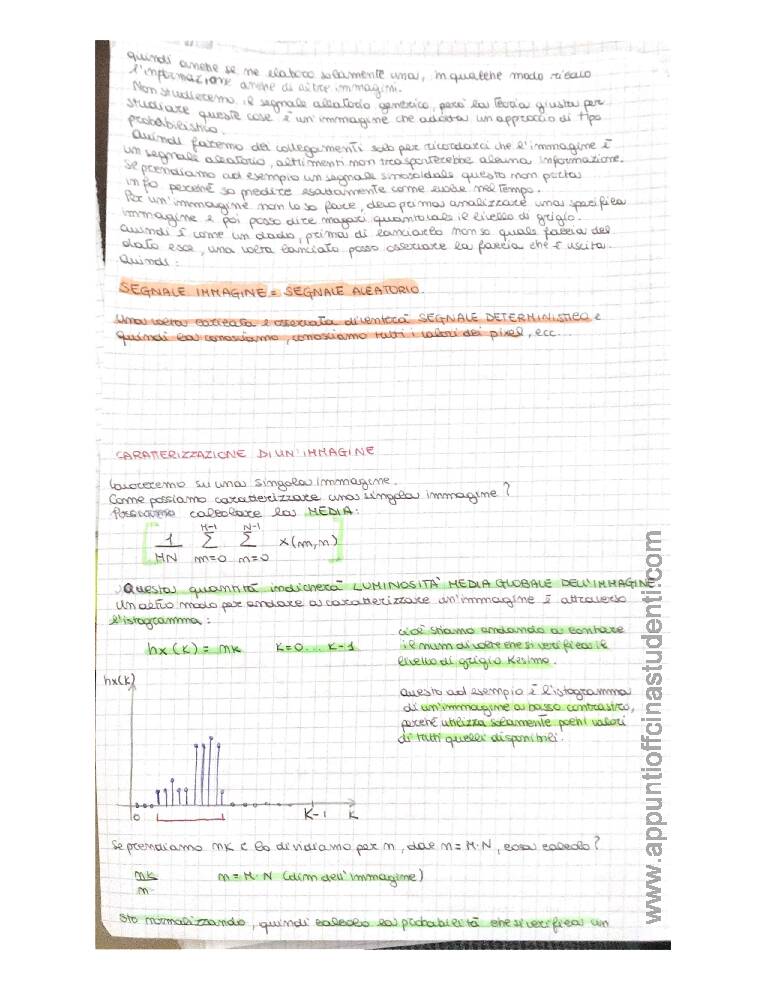 quindi anche se ne elaboro solamente una, in qualche modo ricavo
l'informazione anche di altre immagini.
Non studieremo il segnale aleatorio generico, però la Teoria giusta per
studiare queste cose è un'immagine che adotta un approccio di tipo
probabilistico.
Quindi faremo dei collegamenti solo per ricordarci che l'immagine è
un segnale aleatorio, altrimenti non trasporterebbe alcuna informazione.
Se prendiamo ad esempio un segnale sinosoidale questo non porta
info perchè so predire esattamente come evolve nel Tempo.
Per un'immagine non lo so fare, devo prima analizzare una specifica
immagine e poi posso dire magari quanto vale il livello di grigio.
Quindi è come un dado, prima di lanciarlo non so quale faccia del
dato esce, una volta lanciato posso osservare la faccia che è uscita.
Quindi:
SEGNALE IMMAGINE = SEGNALE ALEATORIO.
Una volta caricata e osservata diventerà SEGNALE DETERMINISTICO e
quindi la conosciamo, conosciamo tutti i valori dei pixel, ecc...
CARATTERIZZAZIONE DI UN'IMMAGINE
Lavoreremo su una singola immagine.
Come possiamo caratterizzare una singola immagine?
Possiamo calcolare la MEDIA:
M-1 N-1
1 Σ Σ x(m,n)
MN m=0 n=0
Questa quantità indicherà LUMINOSITÀ MEDIA GLOBALE DELL'IMMAGINE
Un altro modo per andare a caratterizzare un'immagine è attraverso
l'istogramma:
hx(k) = nk K=0... K-1
cioè stiamo andando a contare
il num di volte che si verifica il
livello di grigio Kesimo.
hx(k)
Questo ad esempio è l'istogramma
di un'immagine a basso contrastro,
perchè utilizza solamente pochi valori
di tutti quelli disponibili.
0 K-1 K
Se prendiamo nk e lo dividiamo per n, dove n=M·N, cosa calcolo?
nk
n
n=M·N (dim dell'immagine)
Sto normalizzando, quindi calcolo la probabilità che si verifica un
www.appuntioffcinastudenti.com